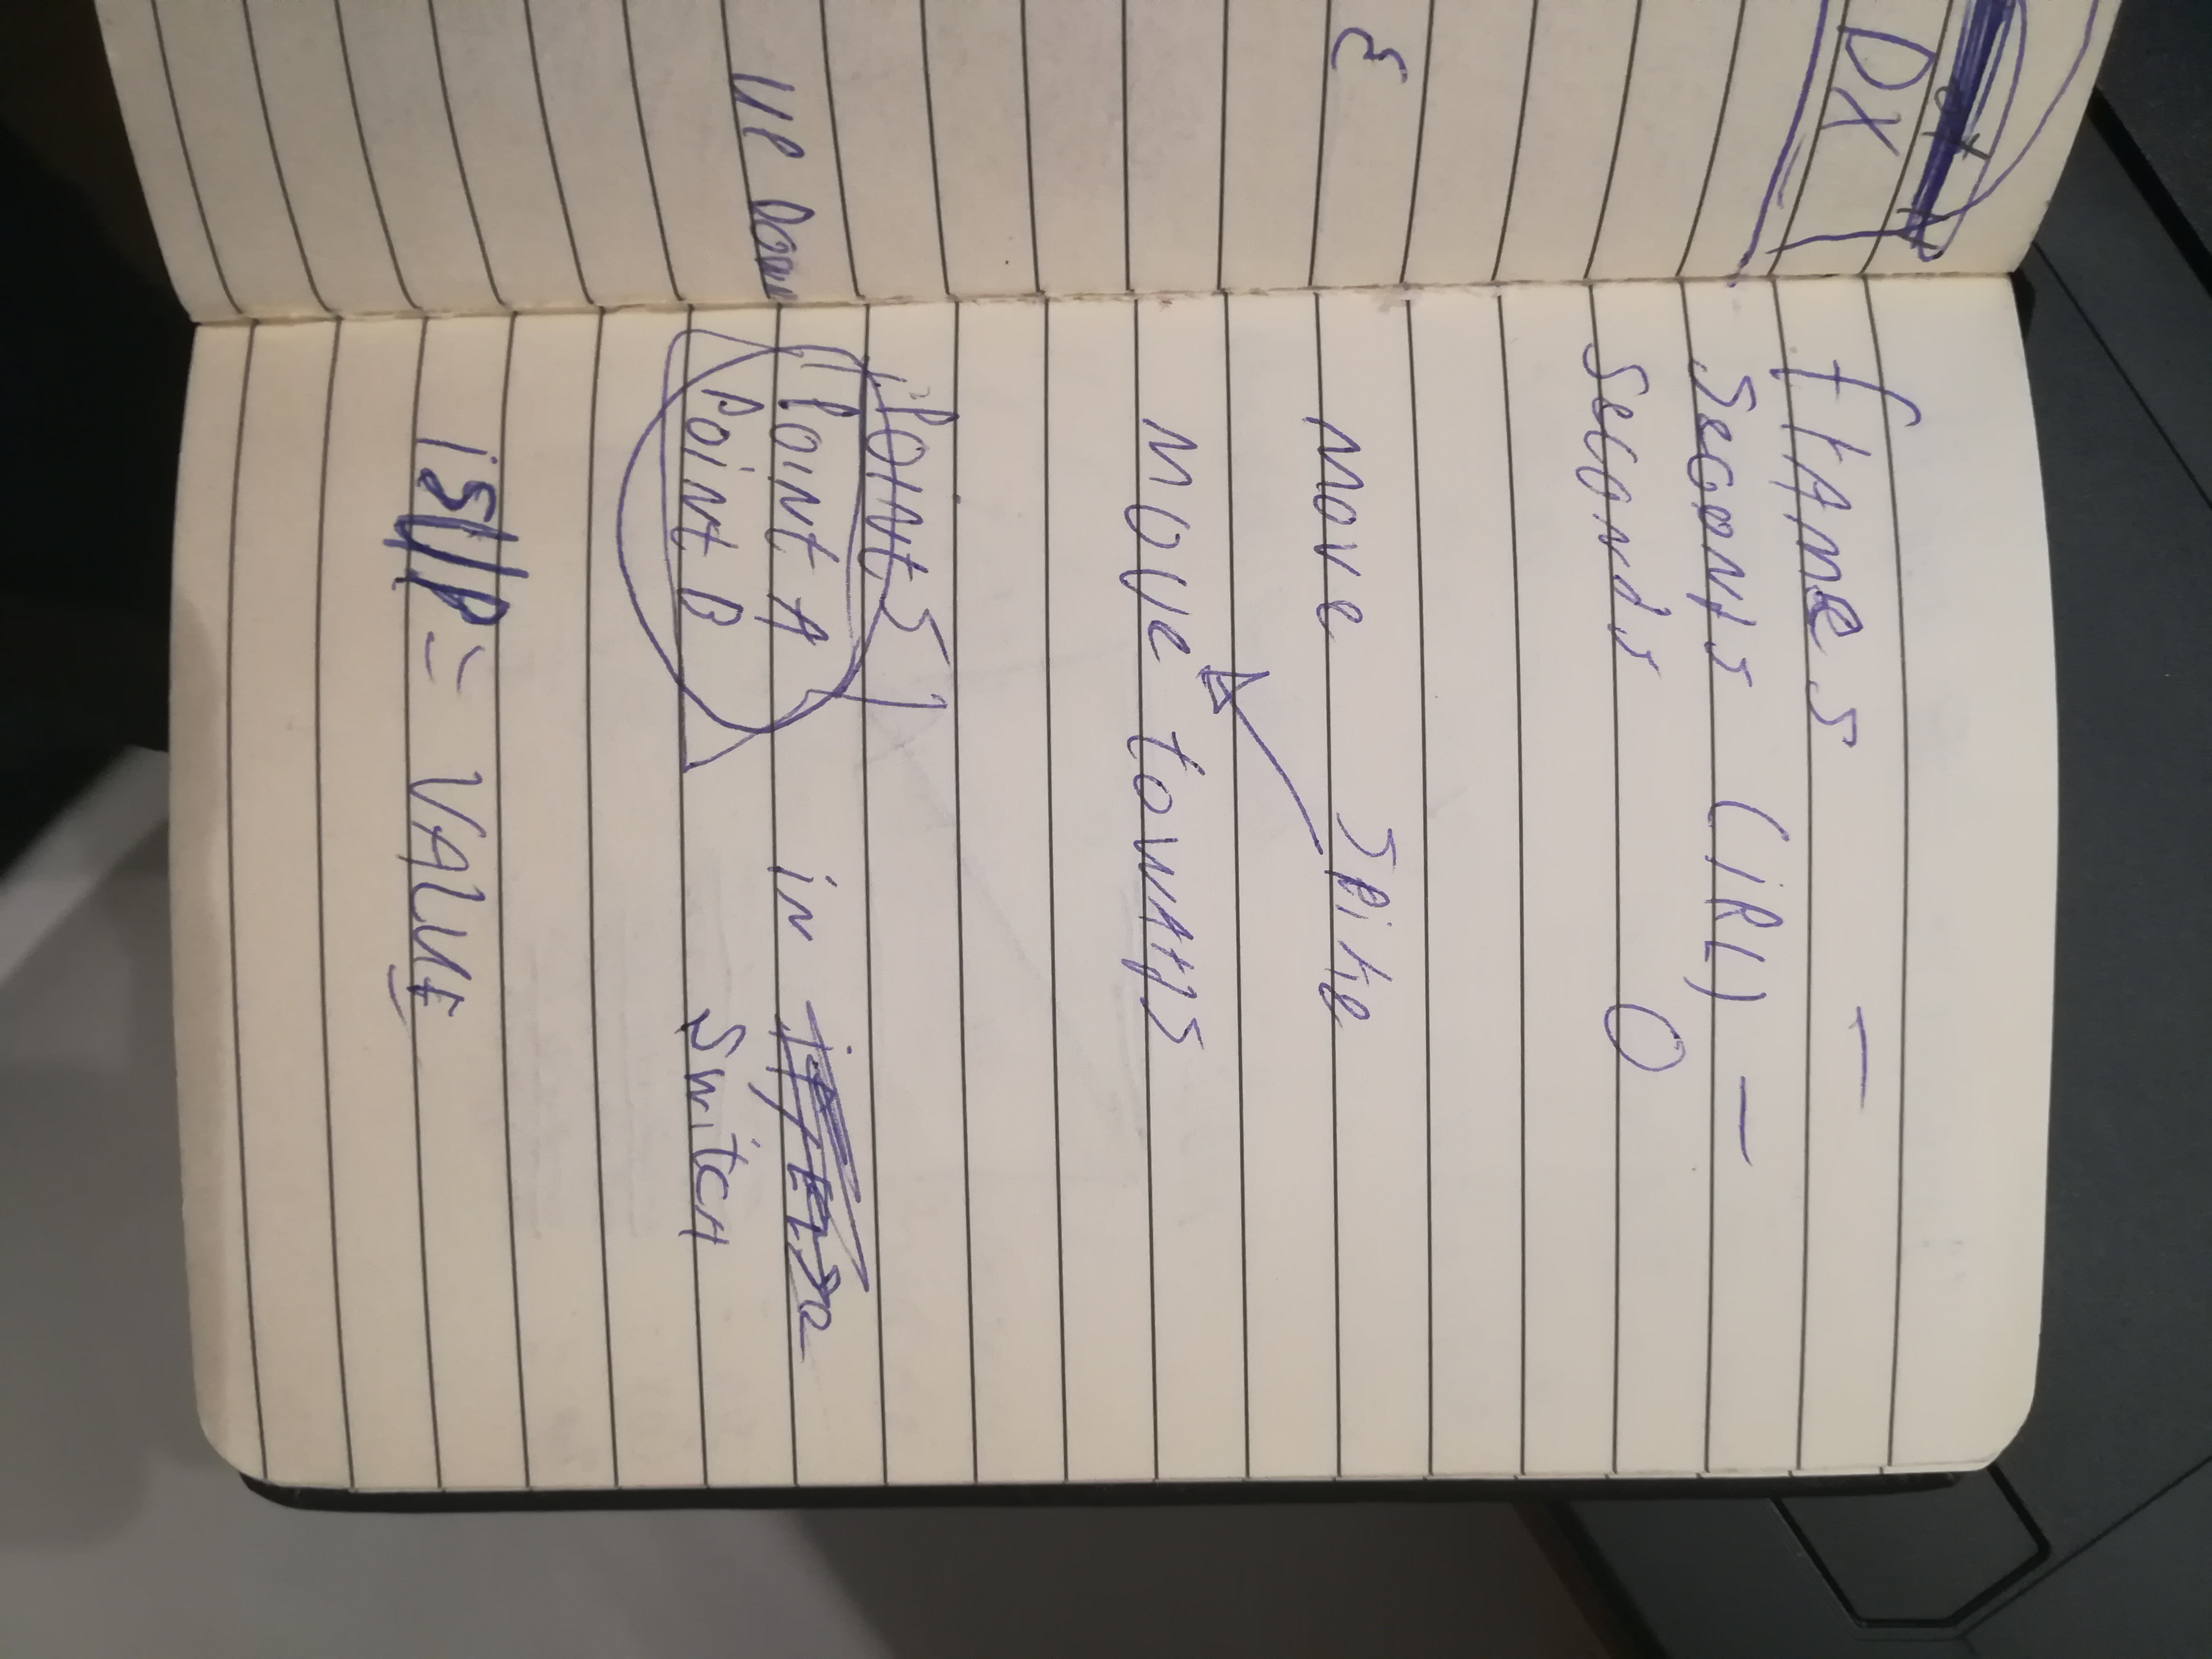 DX
ε
UP Down
frames —
Seconds (IRL) —
Seconds 0
Move Spike
Move towards
Points
Point A in
Point B Switch
isUp = VALUE